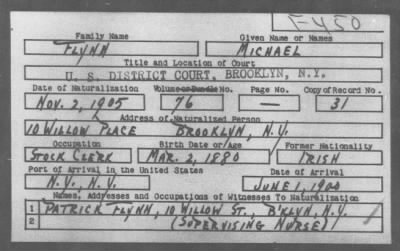 F-450
Family Name Given Name or Names
FLYNN MICHAEL
Title and Location of Court
U. S. DISTRICT COURT, BROOKLYN, N.Y.
Date of Naturalization Volume or Bundle No. Page No. Copy of Record No.
NOV. 2, 1905 76 — 31
Address of Naturalized Person
10 WILLOW PLACE BROOKLYN, N.Y.
Occupation Birth Date or Age Former Nationality
STOCK CLERK MAR. 2, 1880 IRISH
Port of Arrival in the United States Date of Arrival
N.Y., N.Y. JUNE 1, 1900
Names, Addresses and Occupations of Witnesses To Naturalization
1 PATRICK FLYNN, 10 WILLOW ST., B'KLYN, N.Y.
2 (SUPERVISING NURSE)